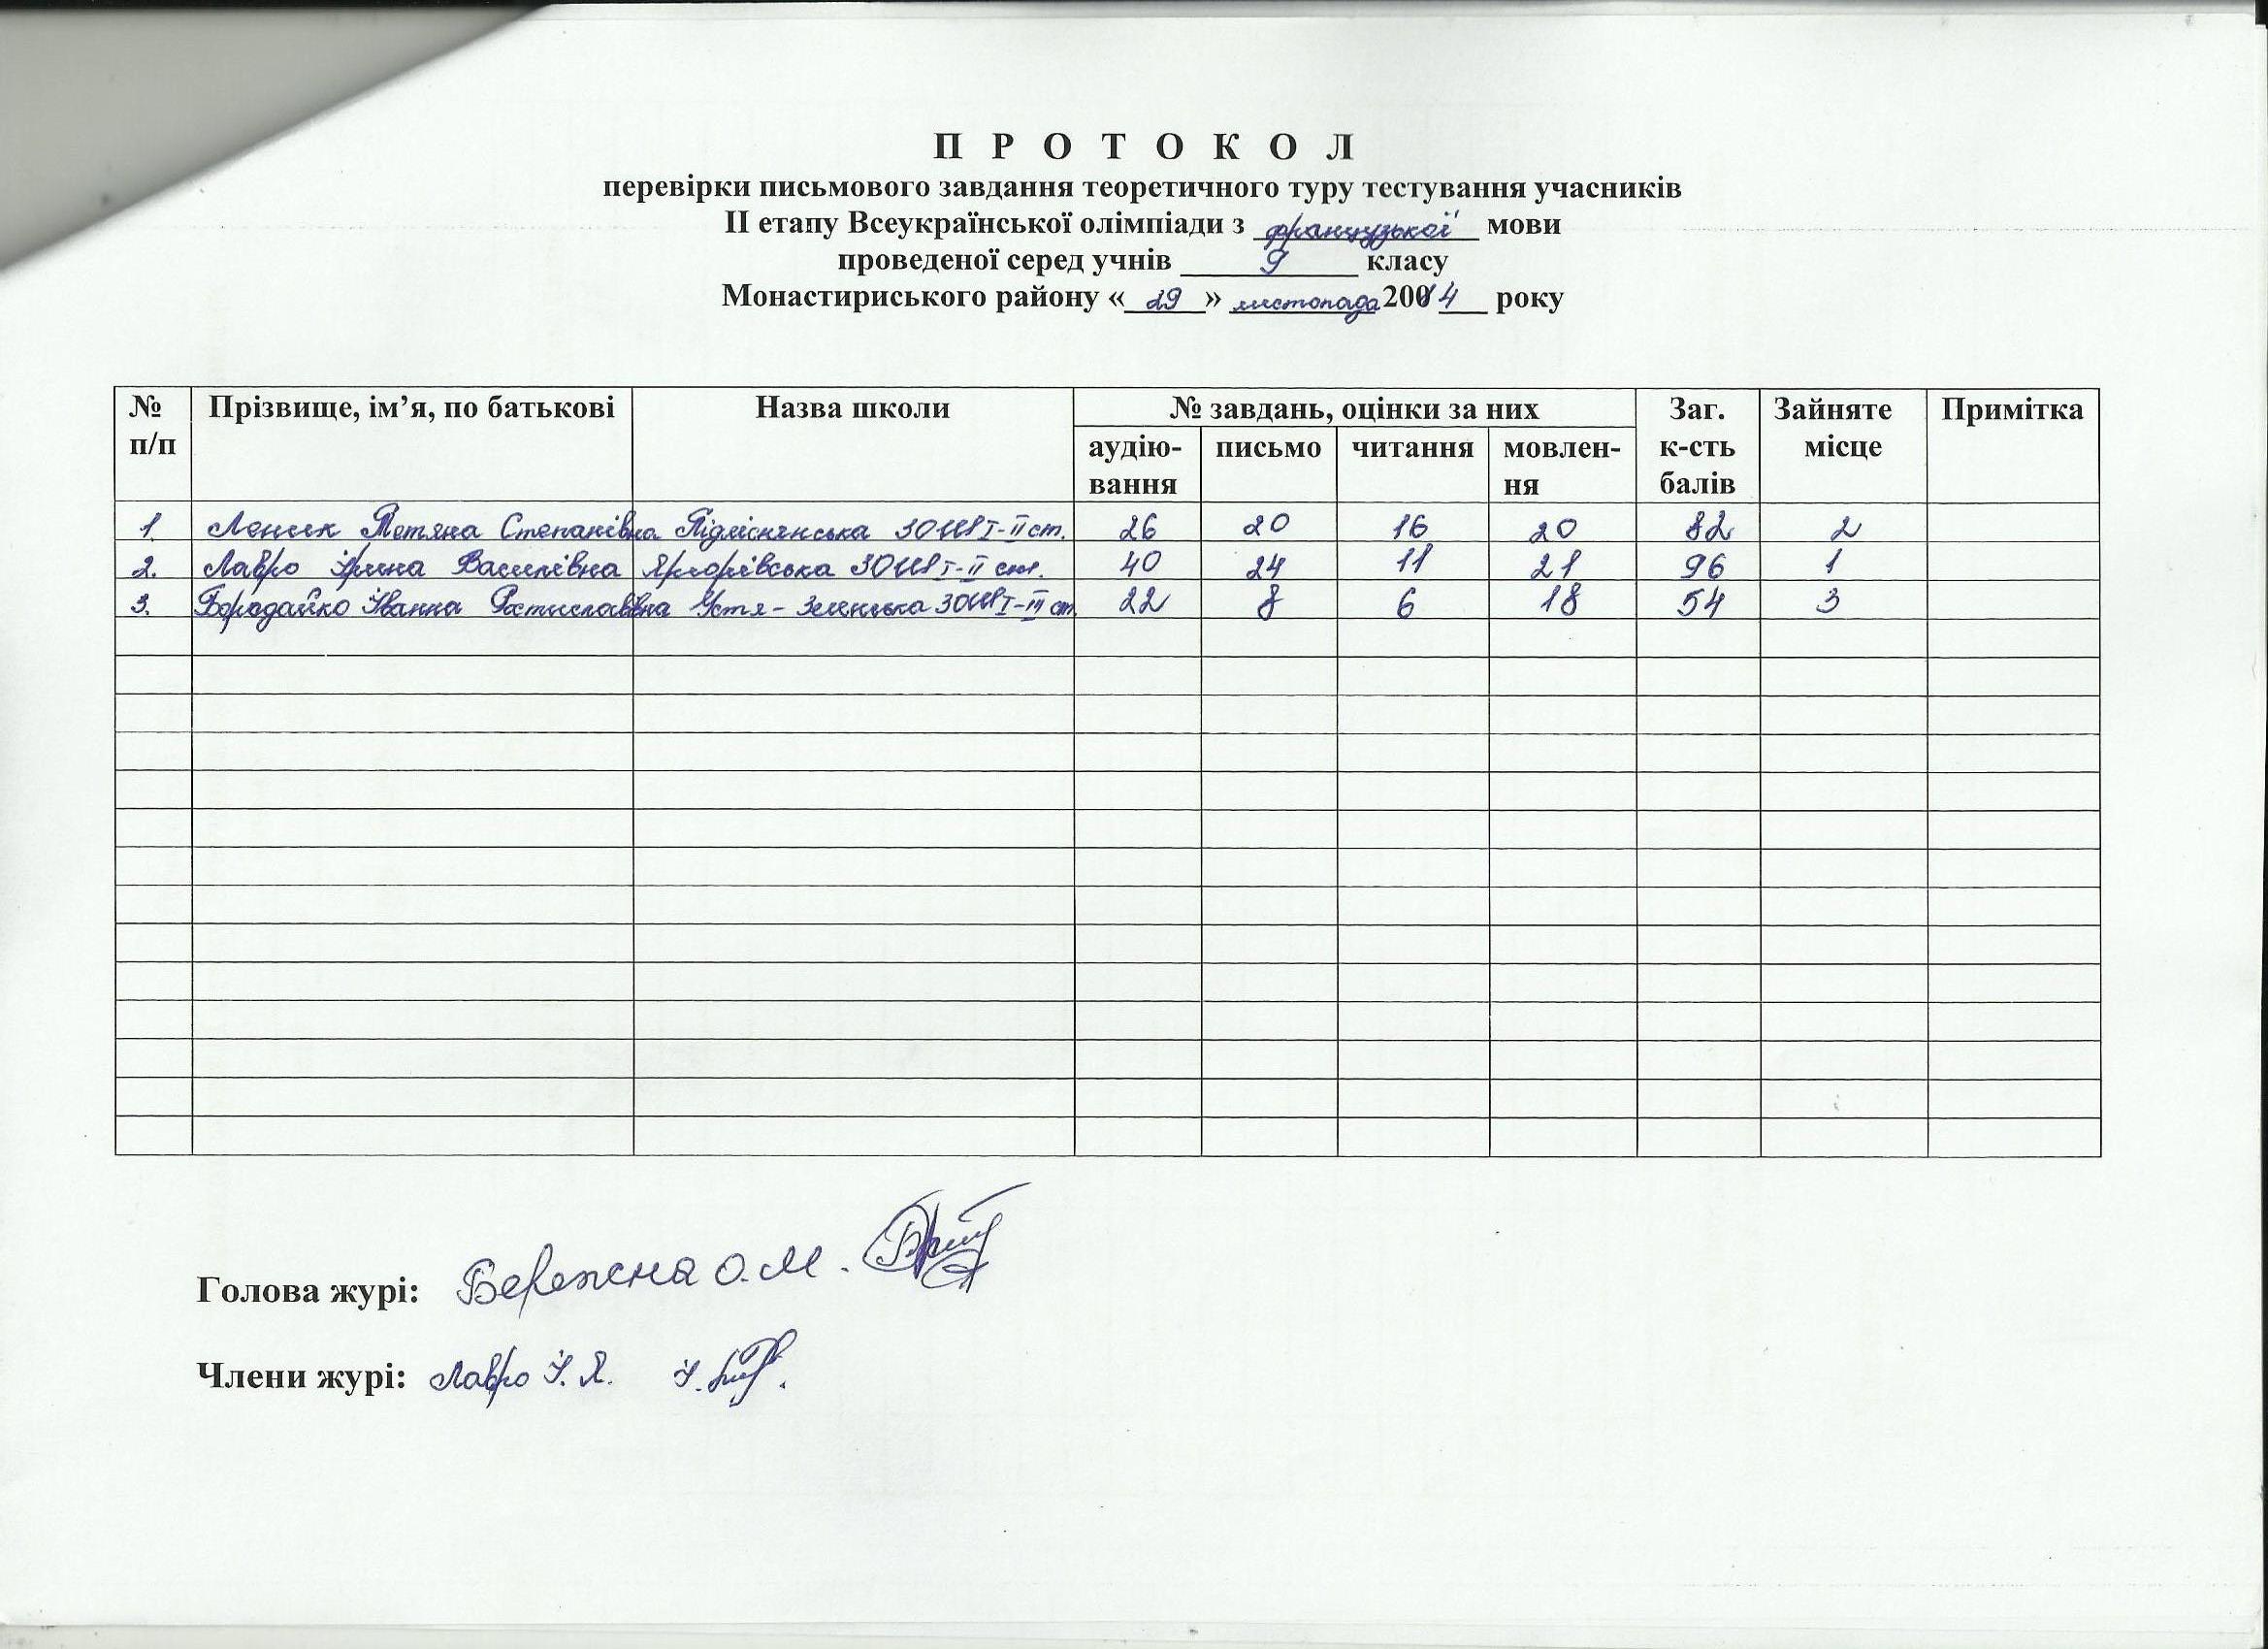 П Р О Т О К О Л
перевірки письмового завдання теоретичного туру тестування учасників
ІІ етапу Всеукраїнської олімпіади з французької мови
проведеної серед учнів 9 класу
Монастириського району «29» листопада 2014 року
№ п/п Прізвище, ім’я, по батькові Назва школи № завдань, оцінки за них Заг. к-сть балів Зайняте місце Примітка
аудіювання письмо читання мовлення
1. Тетяна Степанівна Підліснянська ЗОШ І-ІІ ст. 26 20 16 20 82 2
2. Лавро Ірина Василівна ЗОШ І-ІІ ст. 40 24 11 21 96 1
3. Бородайко Іванна Ростиславівна Устя-Зеленська ЗОШ І-ІІІ ст. 22 8 6 18 54 3
Голова журі: Бережна О.М.
Члени журі: Лавро І. Я.